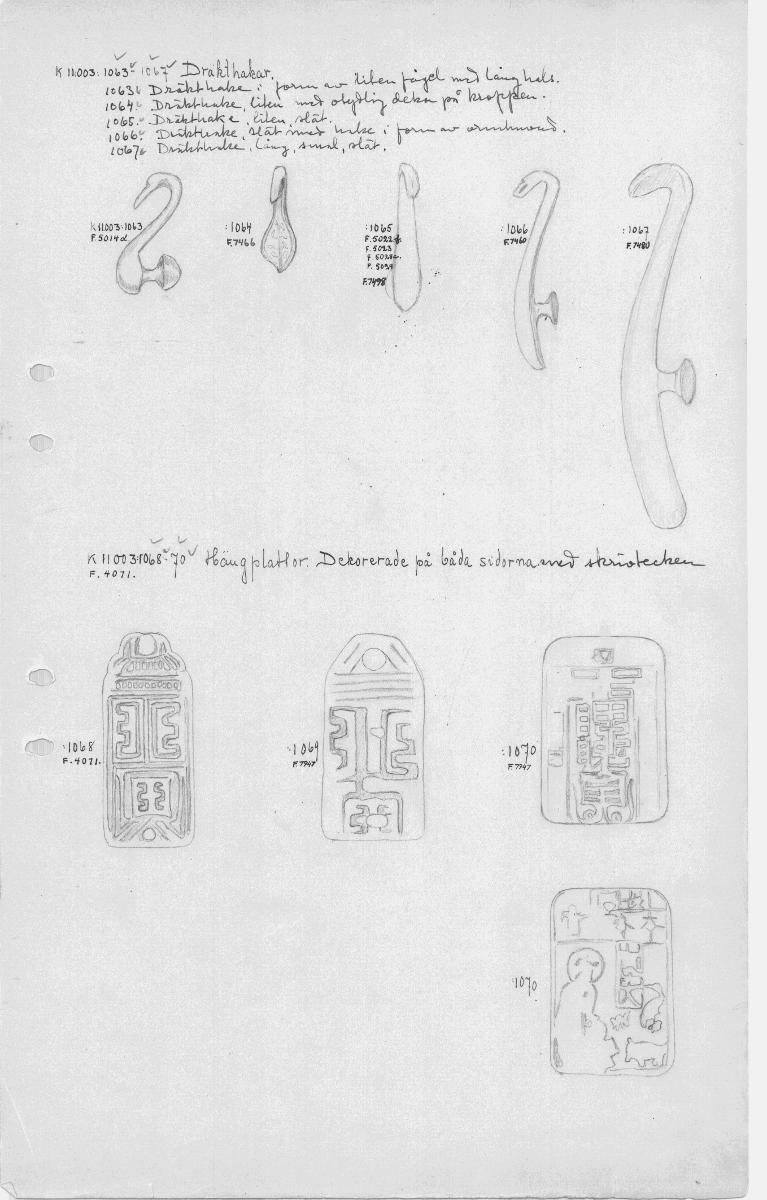 K 11.003: 1063 - 1067 Dräkthakar.
1063 Dräkthake i form av liten fågel med lång hals.
1064 Dräkthake, liten med otydlig dekor på kroppen.
1065. Dräkthake, liten, slät.
1066. Dräkthake, slät med hake i form av ormhuvud.
1067 Dräkthake, lång, smal, slät.
K 11.003:1063
F. 5014 d
:1064
F. 7466
:1065
F. 5022
F. 5023
F. 5029
F. 7498
:1066
F. 7460
:1067
F. 7480
K 11 003:1068-70 Hängplattor. Dekorerade på båda sidorna med skrivtecken
F. 4071.
:1068
F. 4071.
:1069
F. 7747
:1070
F. 7747
:1070